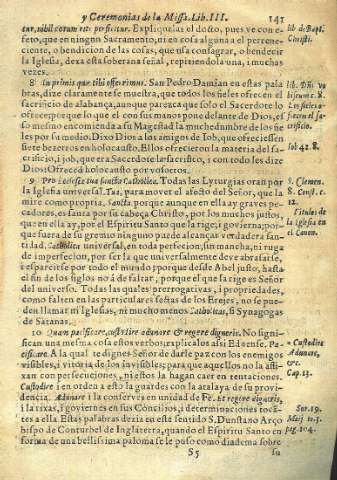 y Ceremonias de la Missa. Lib. III. 141
tur, nihil eorum rite perficitur. Explique las el docto, pues ve con e-
feto, que en ningun Sacramento, ni en cosa alguna a el pertene-
ciente, o bendicion de las cosas, que usa consagrar, o bendecir
la Iglesia, dexa esta soberana señal, repitiendola una, i muchas
vezes.
lib de Bapt.
Christi.
8 In primis que tibi offerimus. San Pedro Damian en estas pala
bras, dize claramente se muestra, que todos los fieles ofrecen el
sacrificio de alabança, aunque parezca que solo el Sacerdote lo
ofrece: porque lo que el con sus manos pone delante de Dios, es
so mesmo encomienda a su Magestad la muchedumbre de los fie
les por su medio. Dixo Dios a los amigos de Iob, que ofreciessen
siete bezerros en holocausto. Ellos ofrecieron la materia del sa-
crificio, i Iob, que era Sacerdote la sacrificio, i con todo les dize
Dios: Ofreced holocausto por vosotros.
lib. Dñi vo
biscum c. 8.
Los fieles o
frecen el sa-
crificio.
Iob 42. 8.
9 Pro Ecclesia tua sancta Catholica. Todas las Lyturgias oran por
la Iglesia universal. Tua, para mover el afecto del Señor, que la
mire como propria. Sancta porque aunque en ella ay graves pe-
cadores, es santa por su cabeça Christo, por los muchos justos,
que en ella ay, por el Espiritu Santo que la rige; i govierna; por-
que fuera de su gremio ninguno puede alcançar verdadera san-
tidad. Catholica universal, en toda perfeccion, sin mancha, ni ruga
de imperfeccion, por ser la que universalmente deve abrasarse,
i esparcirse por todo el mundo: porque desde Abel justo, hasta
el fin de los siglos no à de faltar, porque el que la rige es Señor
del universo. Todas las quales prerrogativas, i propriedades,
como falten en las particulares señas de los Erejes, no se pue-
den llamar ni Iglesias, ni mucho menos Catholicas, si Synagogas
de Satanas.
S. Clemen.
8. Const. c.
12.
Titulos de
la Iglesia en
el Canon.
10 Quam pacificare, custodire adunare & regere digneris. No signi-
fican una mesma cosa estos verbos; explicalos assi Edsense. Pa-
cificare. A la qual te dignes Señor de darle paz con los enemigos
visibles, i vitoria de los invisibles; para que aquellos no la aflí-
xan con persecuciones, ni estos la hagan caer en tentaciones.
Custodire i en orden a esto la guardes con la atalaya de su provi-
dencia. Adunare i la conserves en unidad de Fè. Et regere digneris,
i la rixas, i goviernes en sus Concilios, i determinaciones toca-
tes a ella Estas palabras dezia en este sentido S. Dunstano Arço
bispo de Conturbel de Inglaterra, quando el Espiritu Santo en
forma de una bellissima paloma se le puso como diadema sobre
Custodire
Adunare,
&c.
Cap. 13.
Sur. 19.
Maij to. 3.
pag. 104.
S 5 su